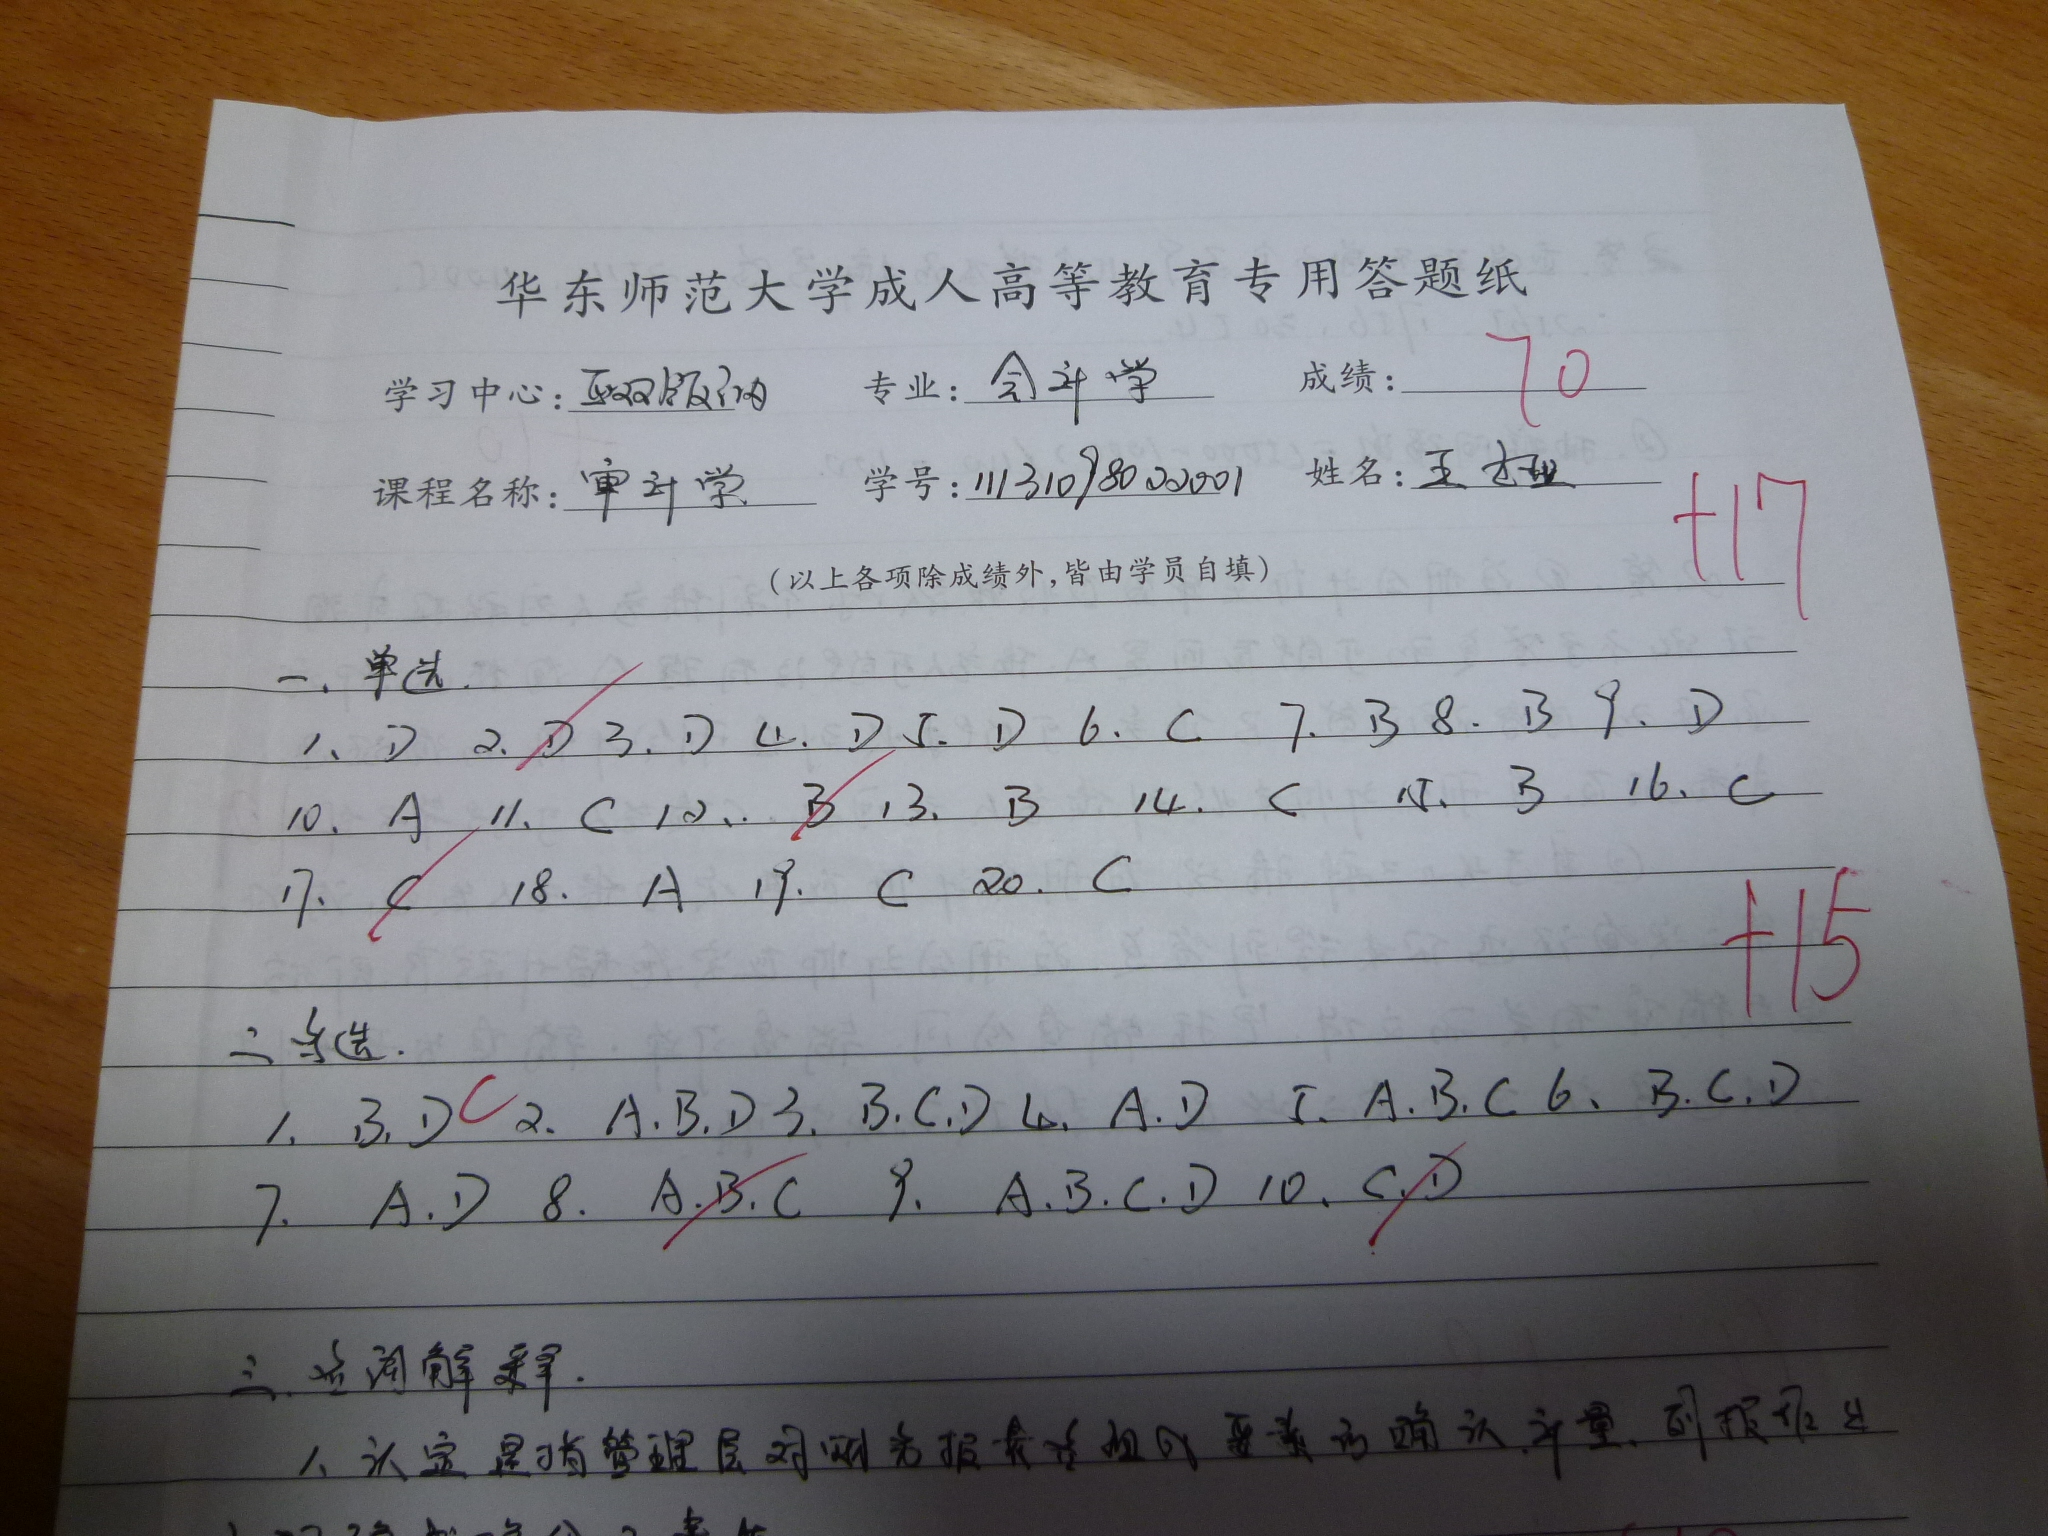 华东师范大学成人高等教育专用答题纸
学习中心: 西双版纳 专业: 会计学 成绩: 70
课程名称: 审计学 学号: 111310980 姓名: 王
+17
(以上各项除成绩外,皆由学员自填)
一、单选.
1、D 2.D 3.D 4.D 5.D 6.C 7.B 8.B 9.D
10、A 11.C 12..B 13.B 14.C 15.B 16.C
17.C 18.A 19.C 20.C
+15
二多选.
1. B.D C 2. A.B.D 3. B.C.D 4. A.D 5. A.B.C 6、B.C.D
7. A.D 8. A.B.C 9. A.B.C.D 10. C.D
三.名词解释.
1、认定是指管理层对财务报表各组成要素的确认.计量、列报作出